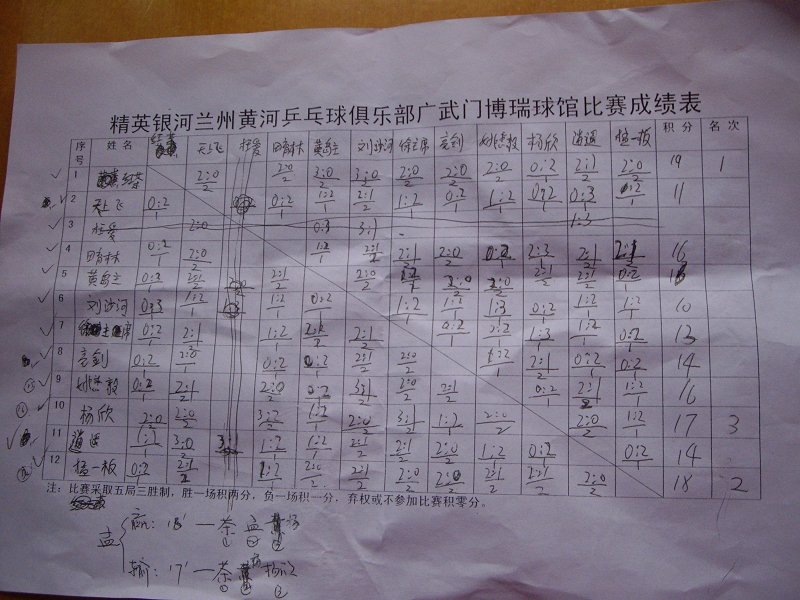 精英银河兰州黄河乒乓球俱乐部广武门博瑞球馆比赛成绩表
序号 姓名 红茶 天上飞 田青林 黄岛主 刘沙河 徐主席 亮剑 姚志毅 杨欣 逍遥 猛一板 积分 名次
1 红茶 2:0/2 2:0/2 2:0/2 3:0/2 2:0/2 2:0/2 2:0/2 0:2/1 2:1/2 2:0/2 19 1
2 天上飞 0:2/1 0:2/1 1:2/1 2:1/2 1:2/1 0:2/1 1:2/1 0:2/1 0:3/1 0:2/1 11
3 2:0 0:3 3:1 1:3
4 田青林 0:2/1 2:0/2 1:2/1 2:1/2 2:1/2 2:0/2 2:3/1 2:1/2 2:1/2 16
5 黄岛主 0:2/1 2:1/2 2:1/2 2:0/2 2:0/2 2:0/2 2:1/2 2:1/2 0:2/1
6 刘沙河 0:3/1 1:2/1 1:2/1 0:2/1 1:2/1 1:2/1 1:3/1 0:2/1 1:2/1 1:2/1 10
7 徐主席 0:2/1 2:1/2 1:2/1 2:1/2 0:2/1 1:3/1 1:2/1 0:2/1 13
8 亮剑 0:2/1 2:0/2 0:2/1 0:2/1 2:1/2 2:0/2 1:2/1 2:1/2 0:2/1 0:2/1 14
9 姚志毅 0:2/1 2:1/2 2:0/2 3:1/2 2:0/2 2:1/2 0:2/1 2:1/2 1:2/1 16
10 杨欣 2:0/2 2:0/2 3:2/2 1:2/1 2:0/2 3:1/2 1:2/1 2:0/2 2:0/2 1:2/1 17 3
11 逍遥 1:2/1 3:0/2 3:1 1:2/1 1:2/1 2:1/2 2:1/2 2:0/2 1:2/1 0:2/1 0:2/1 14
12 猛一板 0:2/1 2:1/2 1:2/1 2:0/2 2:1/2 2:0/2 2:0/2 2:1/2 2:1/2 2:0/2 18 2
注：比赛采取五局三胜制，胜一场积两分，负一场积一分，弃权或不参加比赛积零分。
赢：18' 一茶 孟 黄
孟
输：17' 一茶 黄 杨